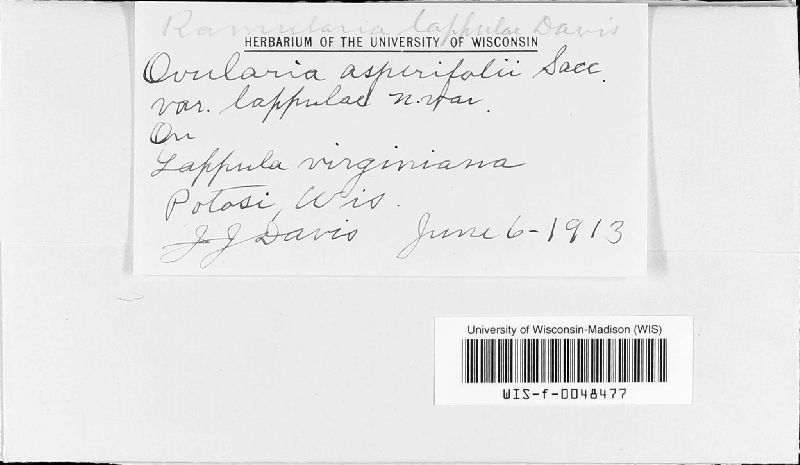 Ramularia lappulae Davis
HERBARIUM OF THE UNIVERSITY OF WISCONSIN
Ovularia asperifolii Sacc.
var. lappulae n. var.
On
Lappula virginiana
Potosi, Wis.
J J Davis June 6-1913
University of Wisconsin-Madison (WIS)
WIS-f-0048477